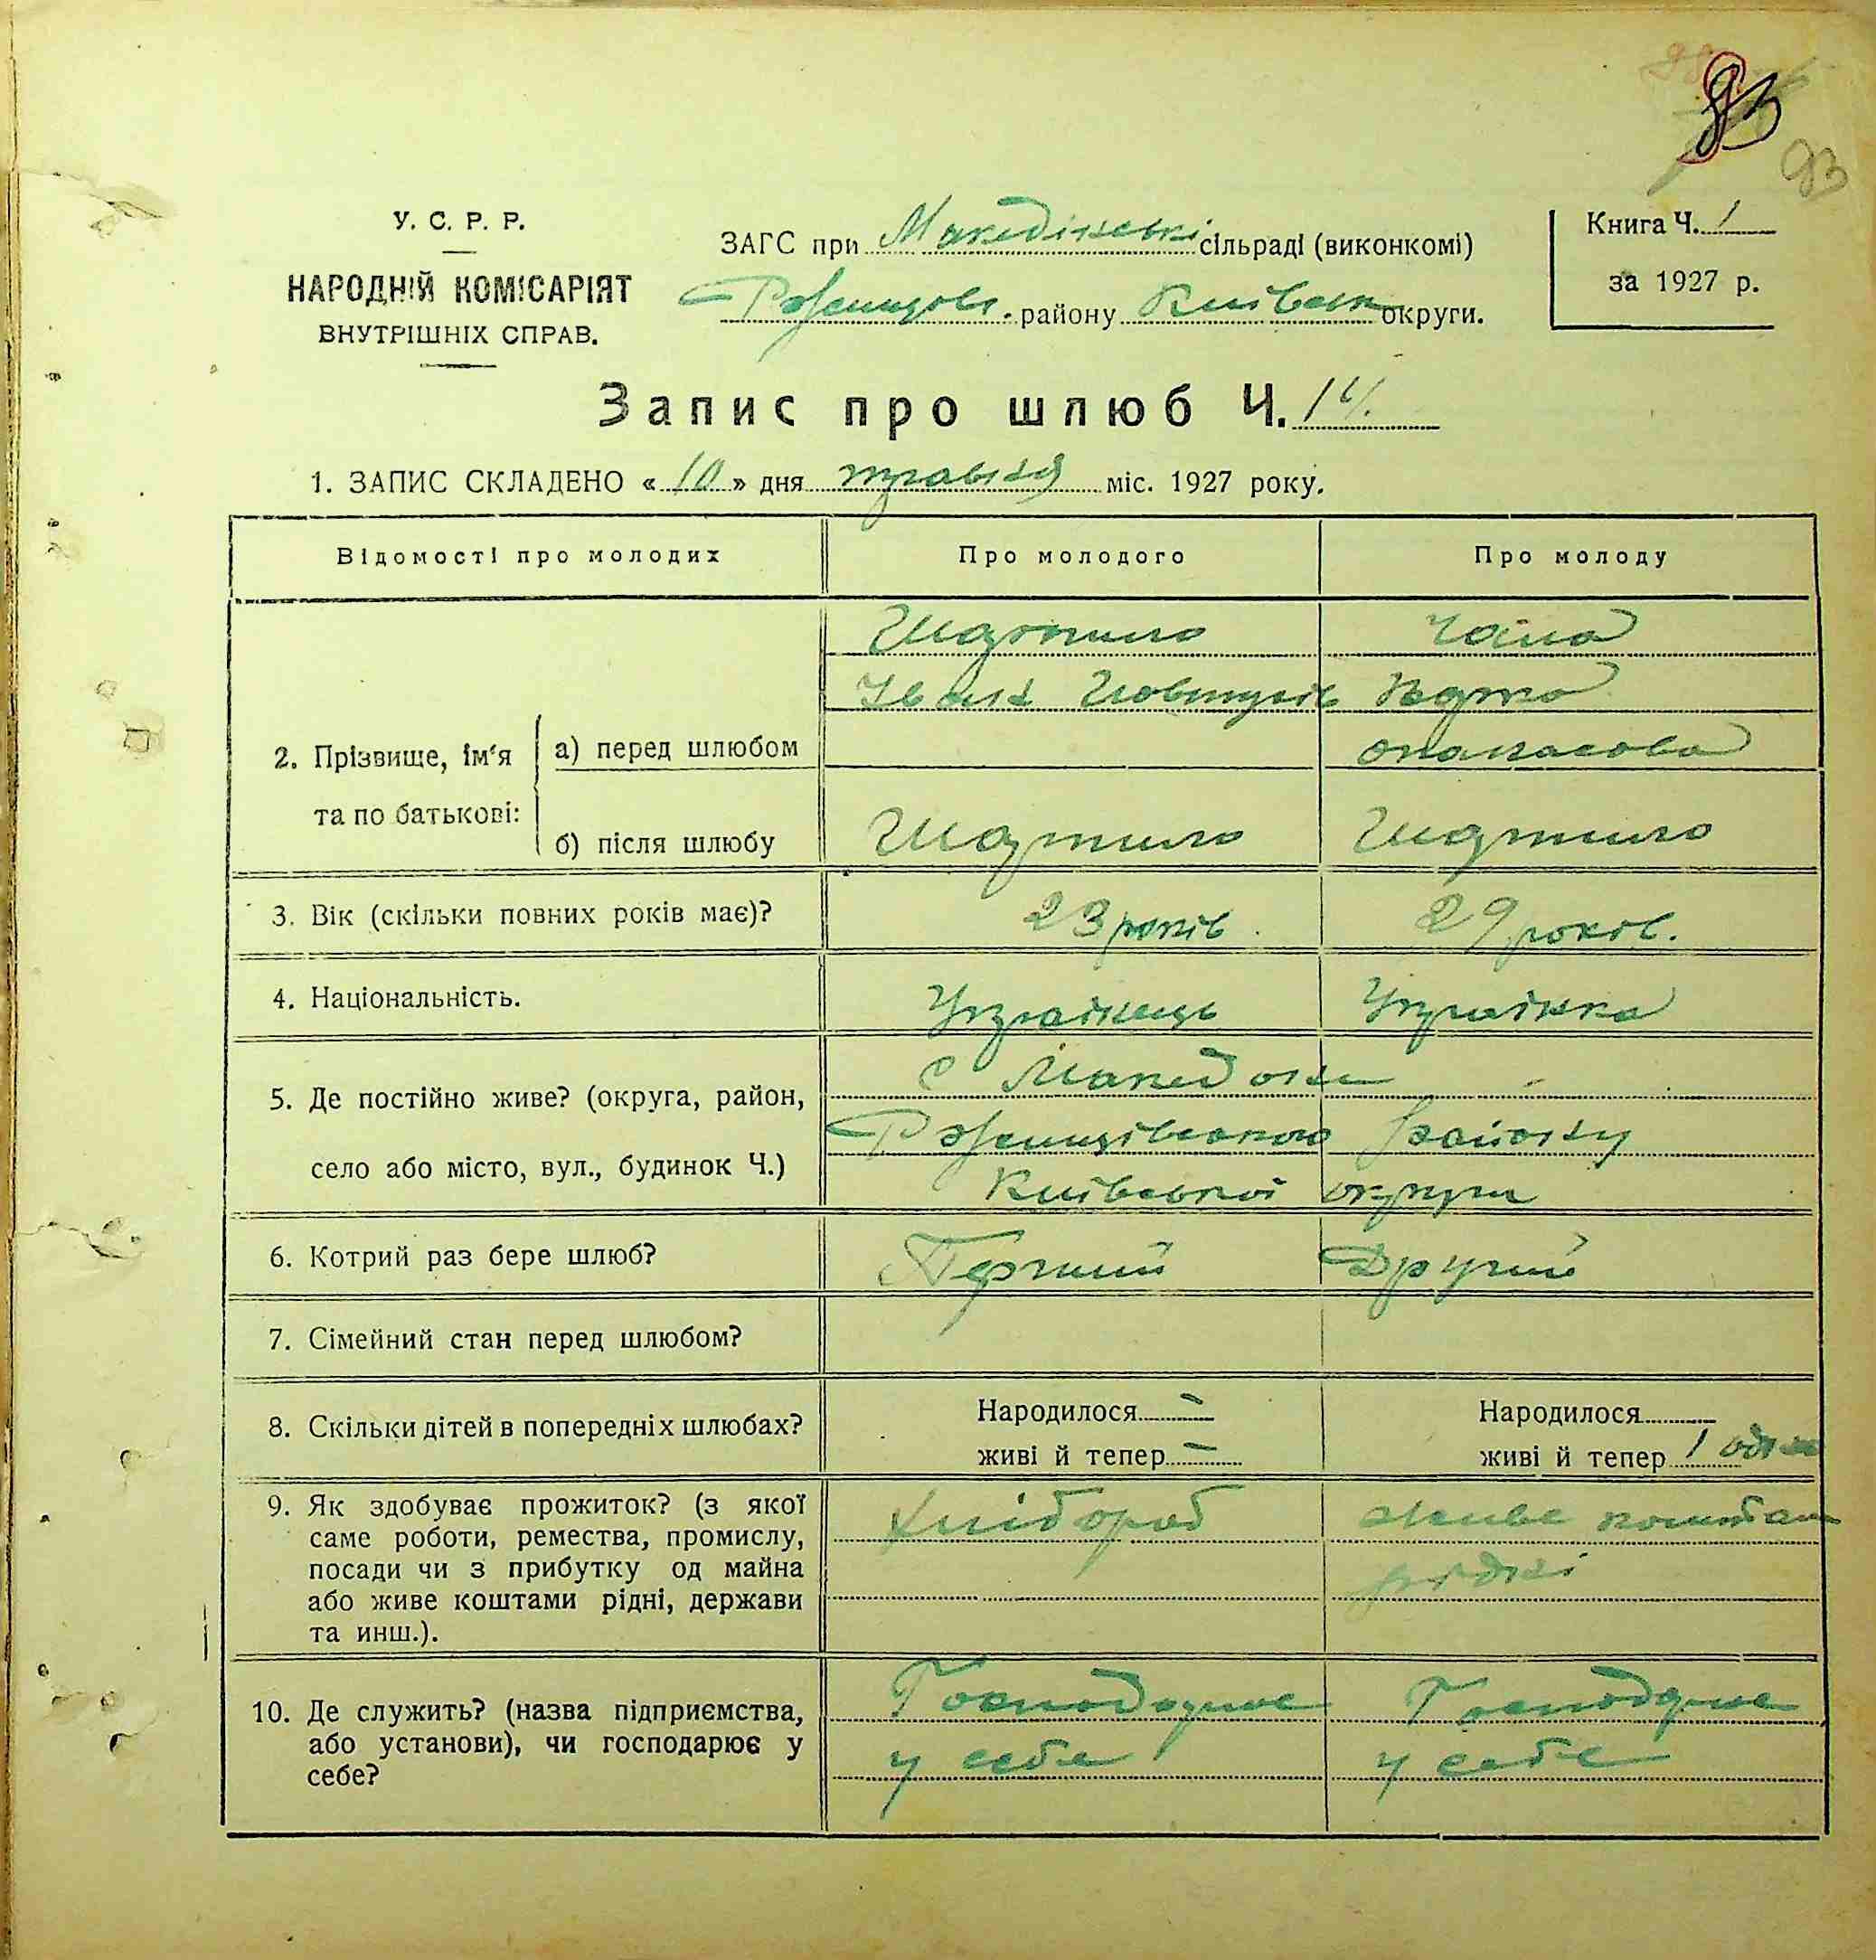 93
93
У. С. Р. Р.
НАРОДНІЙ КОМІСАРІЯТ
ВНУТРІШНІХ СПРАВ.
ЗАГС при Македінські сільраді (виконкомі)
району Київськ округи.
Книга Ч. 1
за 1927 р.
Запис про шлюб Ч. 14.
1. ЗАПИС СКЛАДЕНО « 10 » дня травня міс. 1927 року.
Відомості про молодих
Про молодого
Про молоду
2. Прізвище, ім'я та по батькові:
а) перед шлюбом
Шатило
Іван
Чала
опанасова
б) після шлюбу
Шатило
Шатило
3. Вік (скільки повних років має)?
23 років.
29 років.
4. Національність.
Українець
Українка
5. Де постійно живе? (округа, район,
село або місто, вул., будинок Ч.)
с Македони
Ржищівського району
Київської округи
6. Котрий раз бере шлюб?
Перший
Другий
7. Сімейний стан перед шлюбом?
8. Скільки дітей в попередніх шлюбах?
Народилося –
живі й тепер –
Народилося
живі й тепер 1 одна
9. Як здобуває прожиток? (з якої
саме роботи, ремества, промислу,
посади чи з прибутку од майна
або живе коштами рідні, держави
та инш.).
хлібороб
живе коштам
рідні
10. Де служить? (назва підприємства,
або установи), чи господарює у
себе?
Господарює
у себе
Господарює
у себе